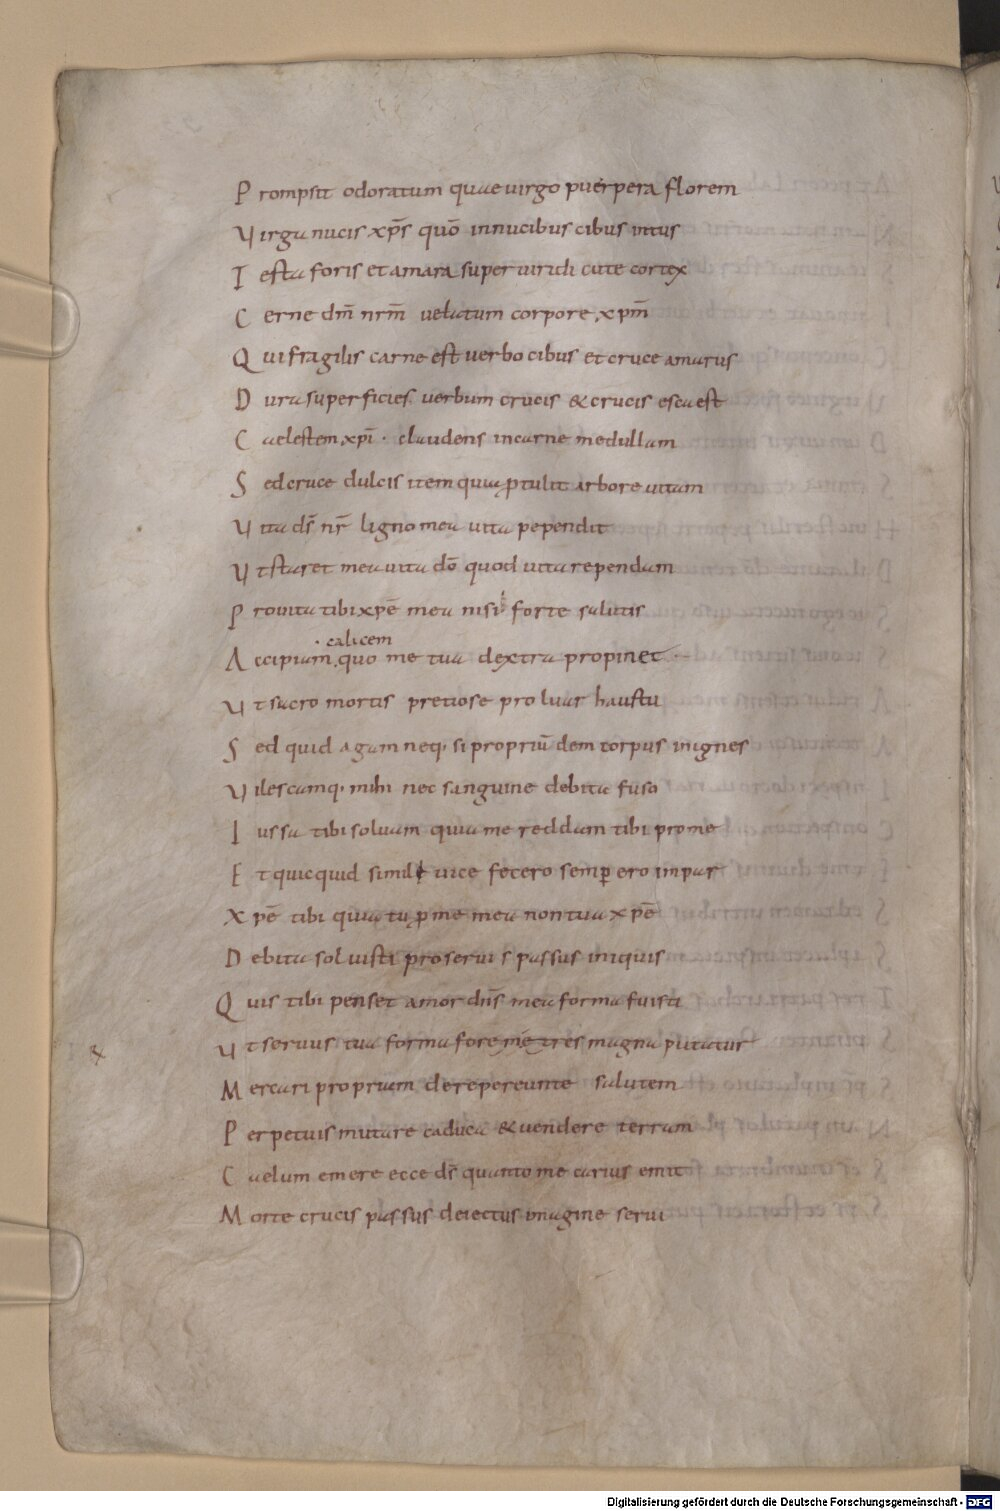 Prompsit odoratum quae uirgo puerpera florem
Uirga nucis xp̅s quo̅ in nucibus cibus intus
Testa foris et amara super uiridi cute cortex
Cerne dm̅ nrm̅ uelatum corpore xpm̅
Qui fragilis carne est uerbo cibus et cruce amarus
Dura superficies uerbum crucis & crucis esca est
Caelestem xpi̅ · claudens in carne medullam
Sed cruce dulcis item quia ꝓtulit arbore uitam
Uita ds̅ nr̅ ligno mea uita pependit
Ut staret mea uita do̅ quod uita rependam
Pro uita tibi xpe̅ mea nisi forte salutis
· calicem
Accipiam, quo me tua dextra propinet
Ut sacro mortis pretiose proluar haustu
Sed quid agam neq; si propriu̅ dem torpus in ignes
Uilescamq; mihi nec sanguine debita fuso
Iussa tibi soluam quia me reddam tibi pro me
Et quicquid simili uice fecero semꝑ ero impar
Xpe̅ tibi quia tu ꝓ me mea non tua xpe̅
Debita soluisti pro seruis passus iniquis
Quis tibi penset amor dn̅s mea forma fuisti
Ut seruus tua forma foret et res magna putatur
Mercari proprium de re pereunte salutem
Perpetuis mutare caduca & uendere terram
Caelum emere ecce ds̅ quanto me carius emit
Morte crucis passus deiectus imagine serui
Digitalisierung gefördert durch die Deutsche Forschungsgemeinschaft - DFG